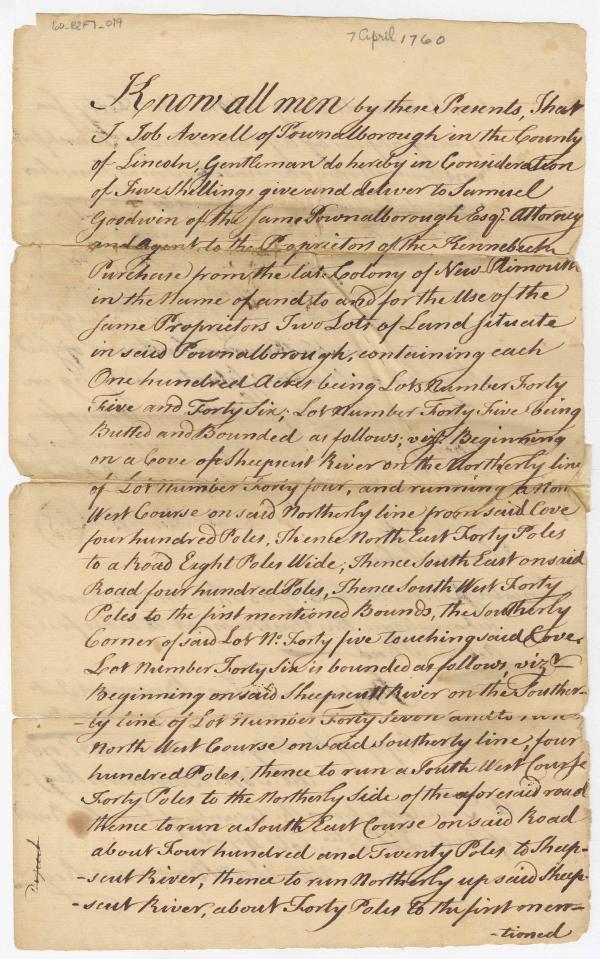 60-B2F7-019
7 April 1760
Know all men by these Presents, That
I Job Averell of Pownalborough in the County
of Lincoln, Gentleman do hereby in Consideration
of Five Shillings give and deliver to Samuel
Goodwin of the same Pownalborough Esqr. Attorney
and Agent to the Proprietors of the Kennebeck
Purchase from the late Colony of New Plimouth
in the Name of and to and for the Use of the
same Proprietors Two Lots of Land situate
in said Pownalborough, containing each
One hundred Acres being Lots Number Forty
Five and Forty Six; Lot Number Forty Five being
Butted and Bounded as follows; vizt. Beginning
on a Cove of Sheepscut River on the Northerly line
of Lot Number Forty four, and running a Nor
West Course on said Northerly line from said Cove
four hundred Poles, Thence North East Forty Poles
to a Road Eight Poles Wide; thence South East on said
Road four hundred Poles, Thence South West Forty
Poles to the first mentioned Bounds, the Southerly
Corner of said Lot No. Forty five touching said Cove.
Lot Number Forty Six is bounded as follows, vizt.
Beginning on said Sheepscutt River on the Souther-
-ly line of Lot Number Forty Seven and to run
North West Course on said Southerly line, four
hundred Poles, thence to run a South West Course
Forty Poles to the Northerly Side of the aforesaid road
thence to run a South East Course on said Road
about Four hundred and Twenty Poles to Sheep-
-scut River, thence to run Northerly up said Sheep-
-scut River, about Forty Poles to the first men-
-tioned